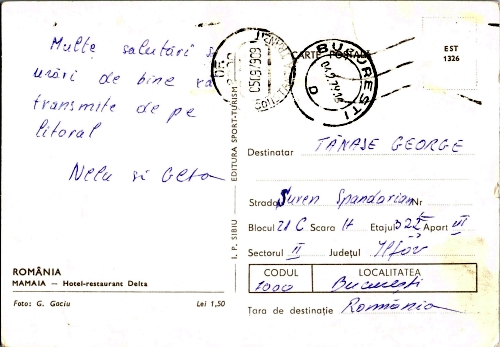 Multe salutări și
urări de bine vă
transmite de pe
litoral
Nelu și Geta
ROMÂNIA
MAMAIA — Hotel-restaurant Delta
Foto: G. Gaciu Lei 1,50
I. P. SIBIU — EDITURA SPORT-TURISM
CARTE POȘTALĂ
BUCUREȘTI
D
EST
1326
Destinatar TĂNASE GEORGE
Strada Suren Spandarian Nr
Blocul 21 C Scara H Etajul Apart III
Sectorul II Județul Ilfov
CODUL LOCALITATEA
7000 București
Tara de destinație România